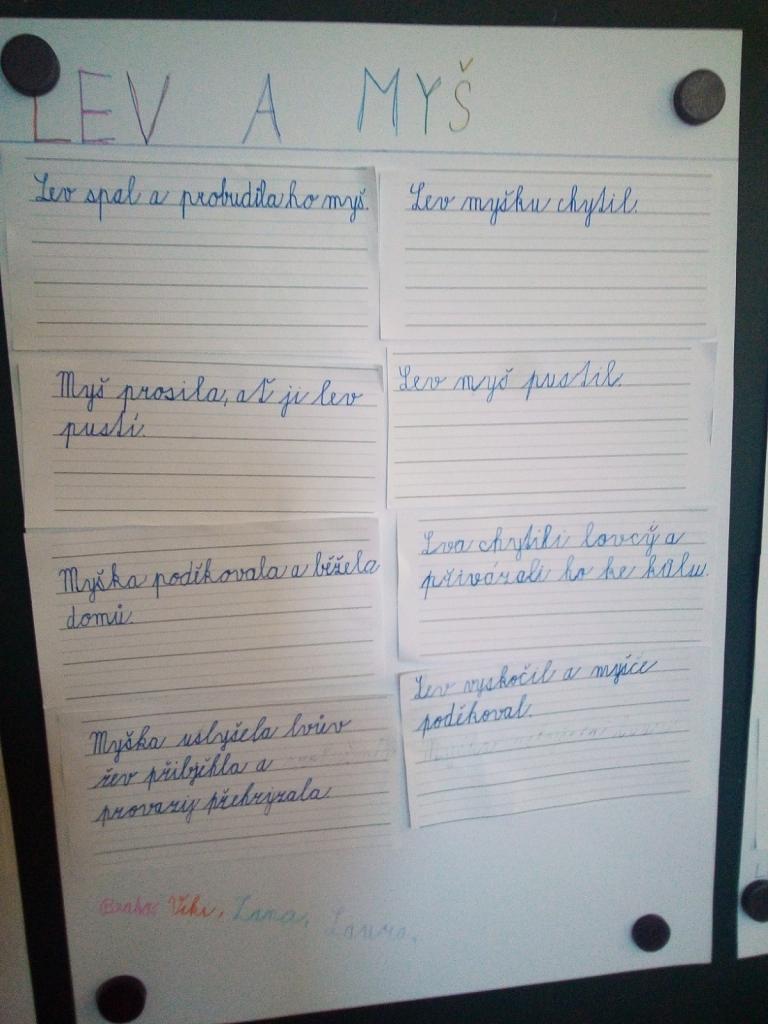 LEV A MYŠ
Lev spal a probudila ho myš.
Lev myšku chytil.
Myš prosila, ať ji lev
pustí.
Lev myš pustil.
Myška poděkovala a běžela
domů.
Lva chytili lovcý a
přivázali ho ke kůlu.
Myška uslyšela lvův
řev přibjěhla a
provazy překrýzala.
Lev vyskočil a myšce
poděkoval.
Viki, Zana, Laura,